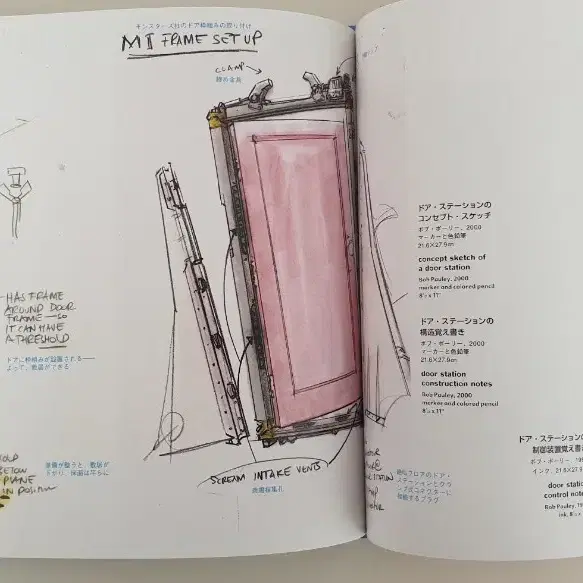 モンスターズ社のドア枠組みの取り付け
MI FRAME SET UP
CLAMP
HAS FRAME
AROUND DOOR
FRAME—SO
IT CAN HAVE
A THRESHOLD
ドアに枠組みが設置される
よって、敷居ができる
PLANE
IN POSITION
SCREAM INTAKE VENTS
悲鳴採集孔
ドア・ステーションの
コンセプト・スケッチ
ボブ・ポーリー、2000
マーカーと色鉛筆
21.6×27.9cm
concept sketch of
a door station
Bob Pauley, 2000
marker and colored pencil
8½ x 11"
ドア・ステーションの
構造覚え書き
ボブ・ポーリー、2000
マーカーと色鉛筆
21.6×27.9cm
door station
construction notes
Bob Pauley, 2000
marker and colored pencil
8½ x 11"
ドア・ステーションの
制御装置覚え書き
ボブ・ポーリー、19
インク、21.6×27.9
door stati
control note
Bob Pauley, 1
ink, 8½ x 1